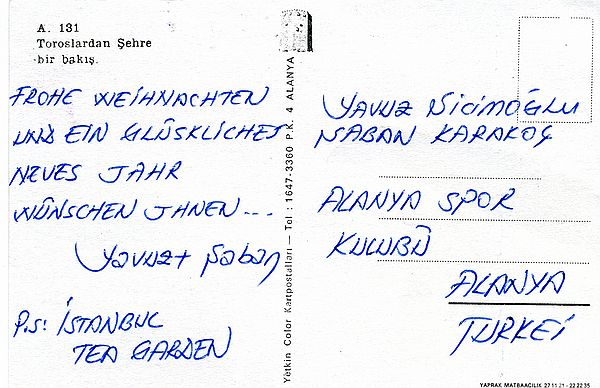 A. 131
Toroslardan Şehre
bir bakış.
FROHE WEIHNACHTEN
UND EIN GLÜSKLICHES
NEUES JAHR
WÜNSCHEN JHNEN...
Yavuz + Şaban
P.S: İSTANBUL
TEA GARDEN
Yetkin Color Kartpostalları — Tel : 1647-3360 P.K. 4 ALANYA
YAVUZ
ŞABAN KARAKOÇ
ALANYA SPOR
KULUBÜ
ALANYA
TURKEİ
YAPRAK MATBAACILIK 27 11 21 - 22 22 35